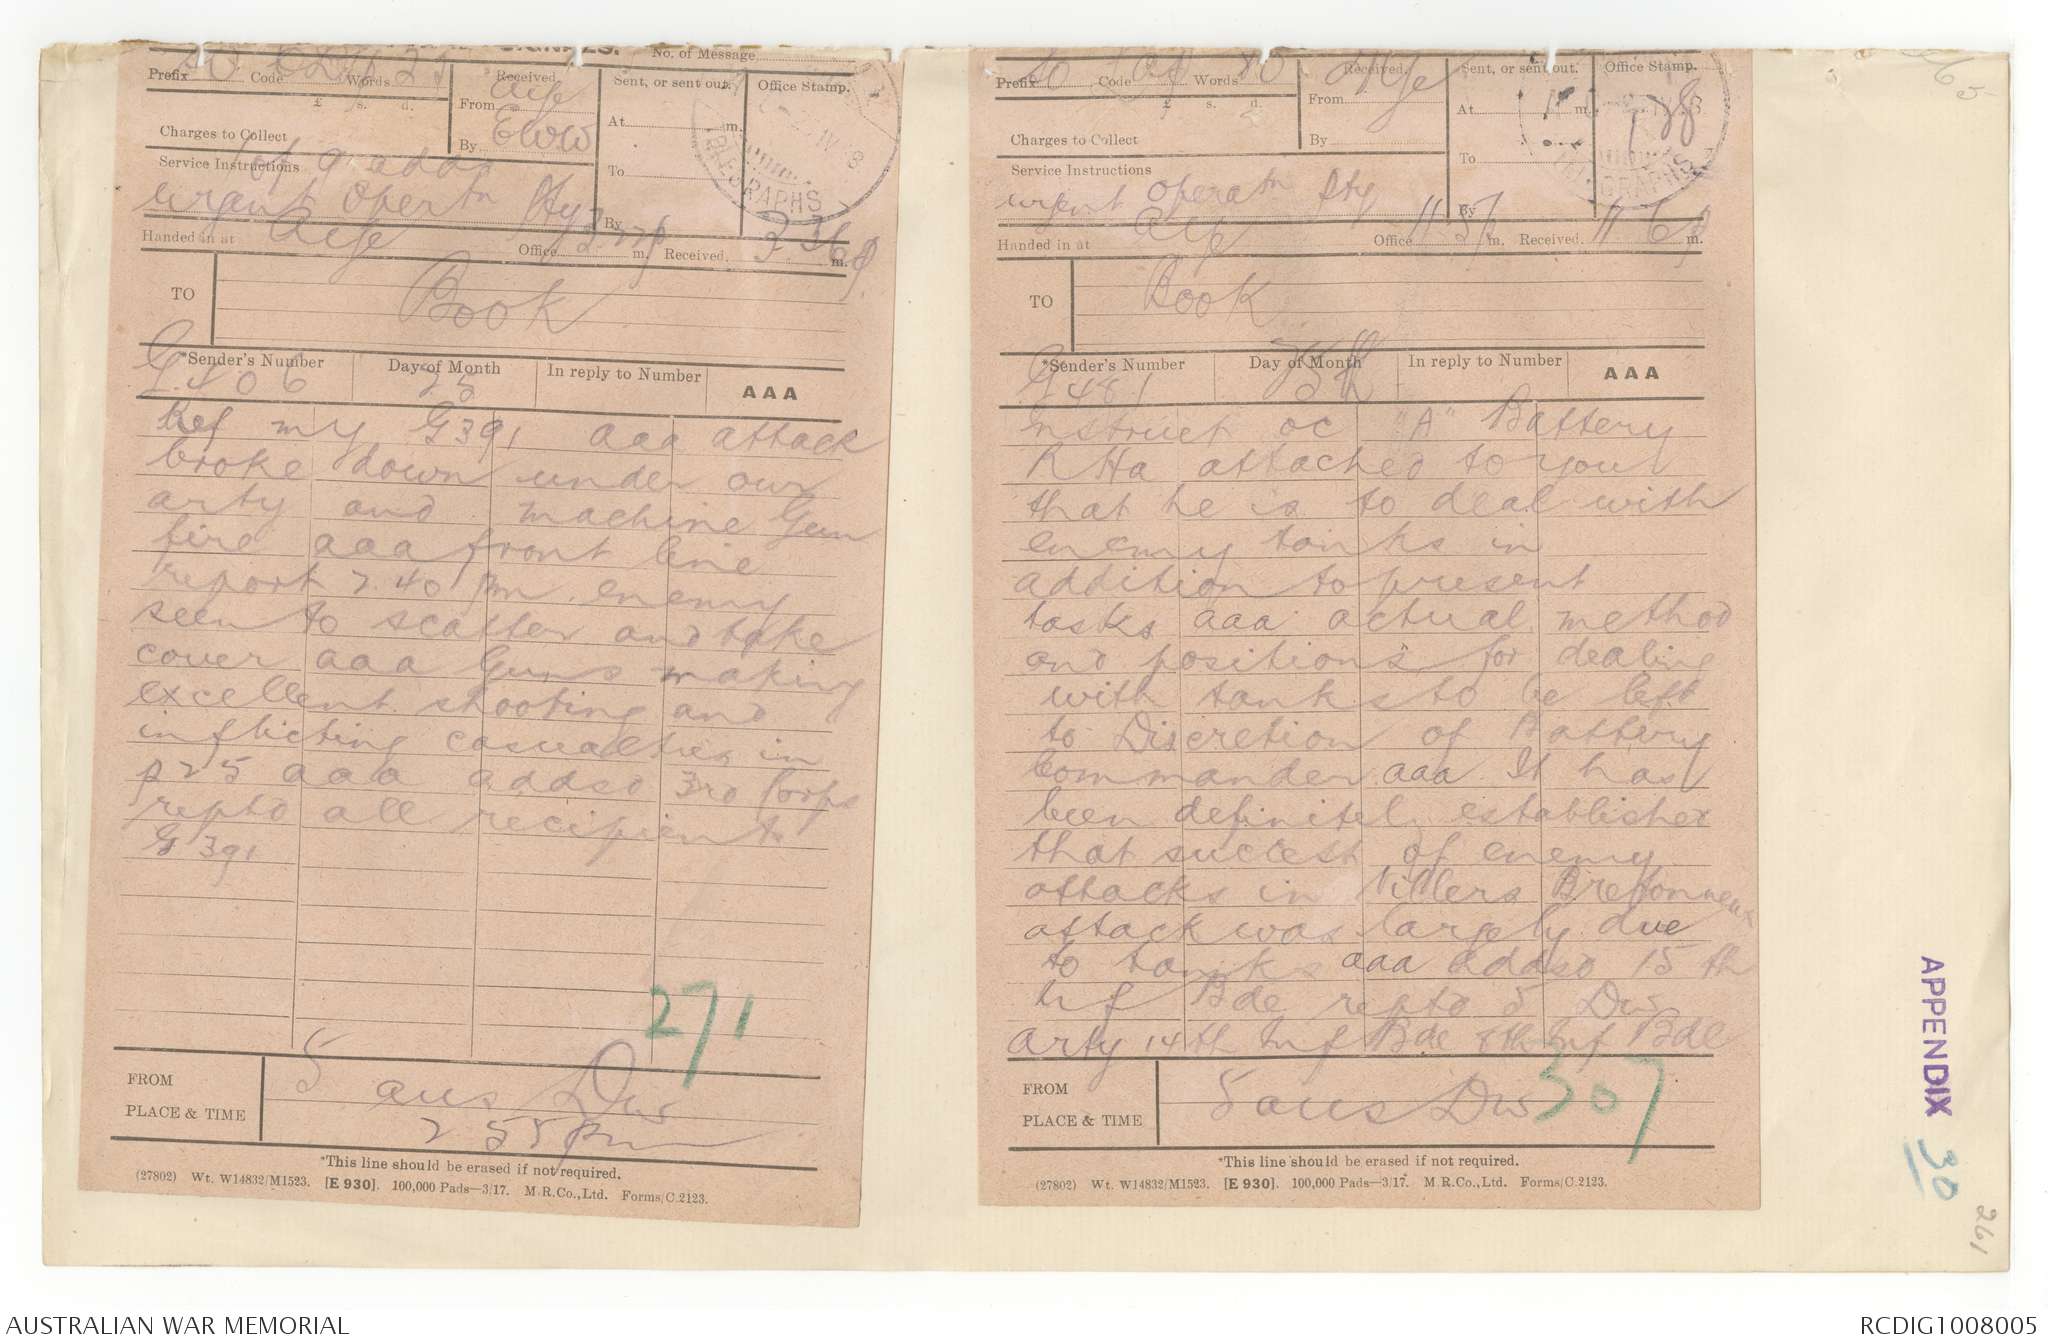 No. of Message
Prefix Code Words
£ s. d.
Charges to Collect
Service Instructions
urgent Opertn Pty
Received.
From Aife
By EWW
Sent, or sent out.
At m.
To
By
Office Stamp.
Handed in at Aife Office m. Received. 3.36 p m.
TO Book
*Sender's Number Day of Month In reply to Number AAA
G.406 25
Ref my G391 aaa attack
broke down under our
arty and machine Gun
fire aaa front line
report 2.40 pm enemy
seen to scatter and take
cover aaa Guns making
excellent shooting and
inflicting casualties in
p25 aaa addsd 3rd Corps
reptd all recipients
G 391
271
FROM 5 aus Div
PLACE & TIME 2 55 pm
*This line should be erased if not required.
(27802) Wt. W14832/M1523. [E 930]. 100,000 Pads—3/17. M.R.Co.,Ltd. Forms/C.2123.
Prefix Code Words
£ s. d.
Charges to Collect
Service Instructions
urgent Operatn Pty
Received.
From
By
Sent, or sent out.
At m.
To
By
Office Stamp.
Handed in at Aife Office m. Received. m.
TO Book
*Sender's Number Day of Month In reply to Number AAA
G481 25th
nstruct oc "A" Battery
RHa attached to you
that he is to deal with
enemy tanks in
addition to present
tasks aaa actual method
and positions for dealing
with tanks to be left
to Discretion of Battery
Commander aaa It has
been definitel establisher
that success of enemy
attacks in Villers Bretonneux
attack was largely due
to tanks aaa addsd 15th
Inf Bde reptd 5 Div
arty 14th Inf Bde 8th Inf Bde
307
FROM 5 aus Div
PLACE & TIME
*This line should be erased if not required.
(27802) Wt. W14832/M1523. [E 930]. 100,000 Pads—3/17. M.R.Co.,Ltd. Forms/C.2123.
APPENDIX 30
261
AUSTRALIAN WAR MEMORIAL
RCDIG1008005